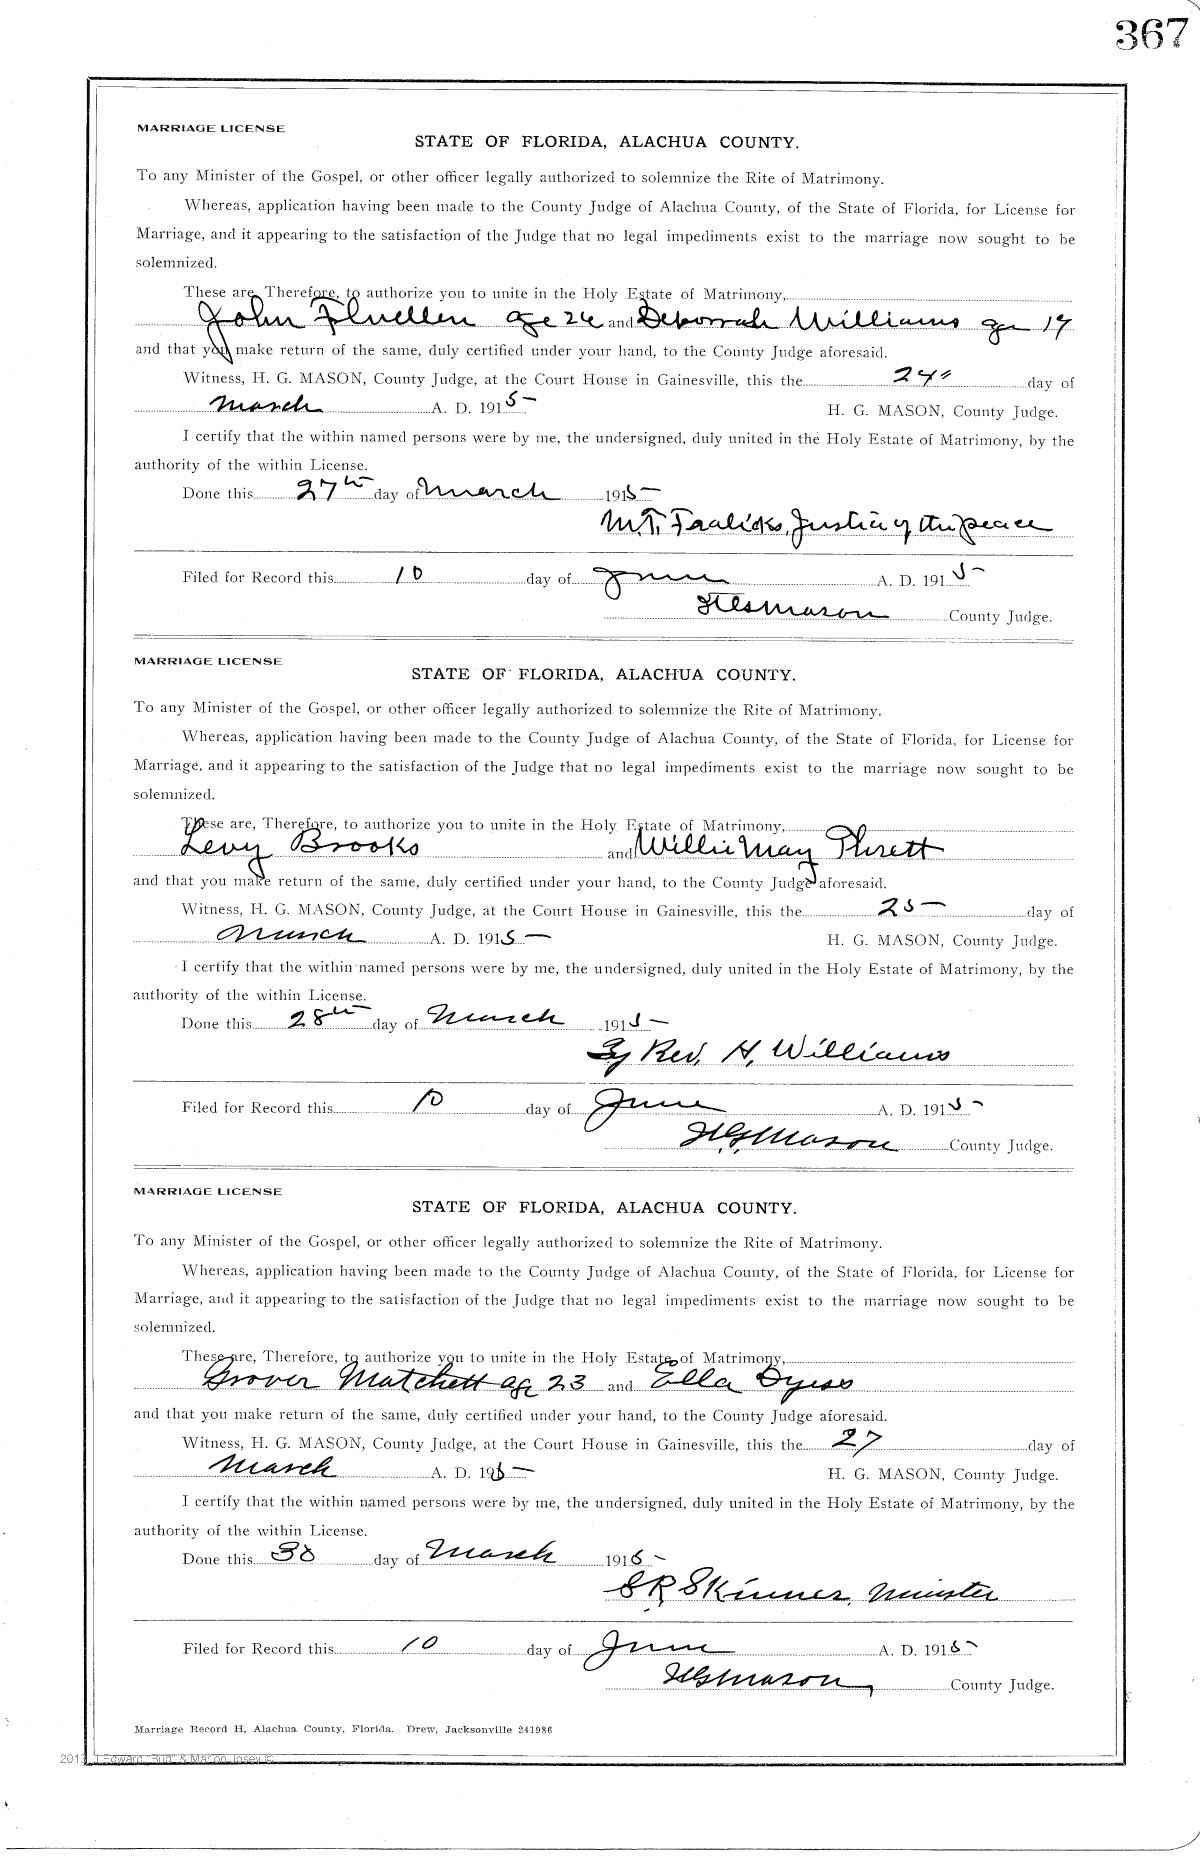 367
MARRIAGE LICENSE
STATE OF FLORIDA, ALACHUA COUNTY.
To any Minister of the Gospel, or other officer legally authorized to solemnize the Rite of Matrimony.
Whereas, application having been made to the County Judge of Alachua County, of the State of Florida, for License for
Marriage, and it appearing to the satisfaction of the Judge that no legal impediments exist to the marriage now sought to be
solemnized.
These are, Therefore, to authorize you to unite in the Holy Estate of Matrimony,
John Fluellen age 26 and Deborrah Williams age 19
and that you make return of the same, duly certified under your hand, to the County Judge aforesaid.
Witness, H. G. MASON, County Judge, at the Court House in Gainesville, this the 24" day of
March A. D. 1915 H. G. MASON, County Judge.
I certify that the within named persons were by me, the undersigned, duly united in the Holy Estate of Matrimony, by the
authority of the within License.
Done this 27th day of March 1915
M.T. Justice of the peace
Filed for Record this 10 day of June A. D. 1915
HG Mason County Judge.
MARRIAGE LICENSE
STATE OF FLORIDA, ALACHUA COUNTY.
To any Minister of the Gospel, or other officer legally authorized to solemnize the Rite of Matrimony.
Whereas, application having been made to the County Judge of Alachua County, of the State of Florida, for License for
Marriage, and it appearing to the satisfaction of the Judge that no legal impediments exist to the marriage now sought to be
solemnized.
These are, Therefore, to authorize you to unite in the Holy Estate of Matrimony,
Levy Brooks and Willie May
and that you make return of the same, duly certified under your hand, to the County Judge aforesaid.
Witness, H. G. MASON, County Judge, at the Court House in Gainesville, this the 25 day of
March A. D. 1915 H. G. MASON, County Judge.
I certify that the within named persons were by me, the undersigned, duly united in the Holy Estate of Matrimony, by the
authority of the within License.
Done this 28th day of March 1915
By Rev. H. Williams
Filed for Record this 10 day of June A. D. 1915
H.G. Mason County Judge.
MARRIAGE LICENSE
STATE OF FLORIDA, ALACHUA COUNTY.
To any Minister of the Gospel, or other officer legally authorized to solemnize the Rite of Matrimony.
Whereas, application having been made to the County Judge of Alachua County, of the State of Florida, for License for
Marriage, and it appearing to the satisfaction of the Judge that no legal impediments exist to the marriage now sought to be
solemnized.
These are, Therefore, to authorize you to unite in the Holy Estate of Matrimony,
Grover Matchett age 23 and Ella Dyess
and that you make return of the same, duly certified under your hand, to the County Judge aforesaid.
Witness, H. G. MASON, County Judge, at the Court House in Gainesville, this the 27 day of
March A. D. 1915 H. G. MASON, County Judge.
I certify that the within named persons were by me, the undersigned, duly united in the Holy Estate of Matrimony, by the
authority of the within License.
Done this 30 day of March 1915
S R Skinner, Minister
Filed for Record this 10 day of June A. D. 1915
HG Mason, County Judge.
Marriage Record H, Alachua County, Florida. Drew, Jacksonville 241986
2013 J Edward "Bud" & Mason Josey ©